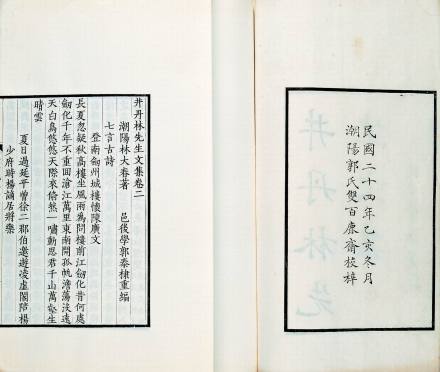 民國二十四年乙亥冬月
潮陽郭氏雙百鹿齋校梓
井丹林先生文集卷二
潮陽林大春著　邑後學郭泰棣重編
七言古詩
登南劍州城樓懷陳廣文
長夏忽疑秋高樓坐風雨為問樓前江劍化昔何處
劍化千年不重回滄江萬里東南開孤帆澹蕩淡遠
天白鳥悠悠天際來倚然一嘯動思君千山萬壑生
晴雲
夏日過延平曾徐二郡伯邀遊凌虛閣陪楊
少府時楊謫居辭樂